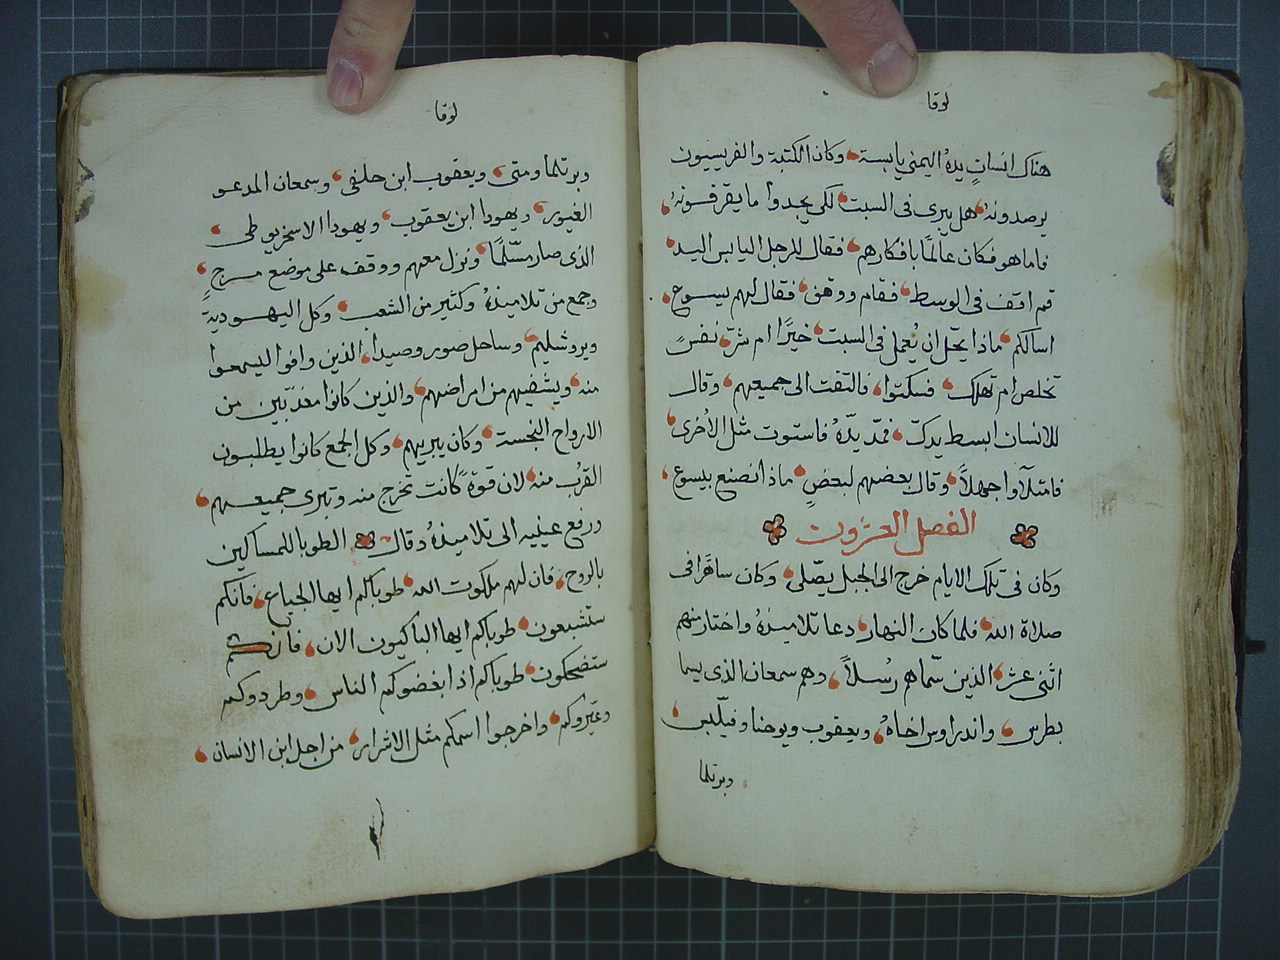 لوقا
هناك انسان يده اليمني يابسة وكان الكتبة والفريسيون
يرصدونه هل يبرى فى السبت لكى يجدوا ما يقرفونه
فاما هو فكان عالمًا بافكارهم فقال للرجل اليابس اليد
قم اقف فى الوسط فقام ووقف فقال لهم يسوع
اسالكم ماذا يحّل ان يُعمل فى السبت خيرًا ام شرّ نفسٌ
تخلص ام تهلك فسكتوا فالتفت الى جميعهم وقال
للانسان ابسط يدك فمدّ يدّهُ فاستوت مثل الاُخرى
فامتلآوا جهلاً وقال بعضهم لبعضٍ ماذا نصنع بيسوع
الفصل العشرون
وكان فى تلك الايام خرج الى الجبل يصّلى وكان ساهرًا فى
صلاة الله فلما كان النهار دعا تلاميذهُ واختار منهم
اثنى عشر الذين سّماهم رُسلاً وهم سمعان الذى يسما
بطرس واندراوس اخاهُ ويعقوب ويوحنا وفيلّبس
وبرتلما
لوقا
وبرتلما ومتى ويعقوب ابن حلفى وسمعان المدعو
الغيور ويهودا ابن يعقوب ويهودا الاسخريوطى
الذى صار مسّلمًا ونزل معهم ووقف على موضع مرج
وجمع من تلاميذهُ وكثير من الشعب وكل اليهودية
ويروشليم وساحل صور وصيدا الذين وافوا ليسمعوا
منه ويشفيهم من امراضهم والذين كانوا معذبّين من
الارواح النجسة وكان يبريهم وكل الجمع كانوا يطلبون
القرُب منه لان قوة كانت تخرج منه وتبرى جميعهم
ورفع عينيه الى تلاميذهُ وقال الطوبا للمساكين
بالروح فان لهم ملكوت الله طوباكم ايها الجياع فانكم
ستشبعون طوباكم ايها الباكيون الان فانكم
ستضحكون طوباكم اذا ابغضوكم الناس وطردوكم
وعيّروكم واخرجوا اسمكم مثل الاشرار من اجل ابن الانسان